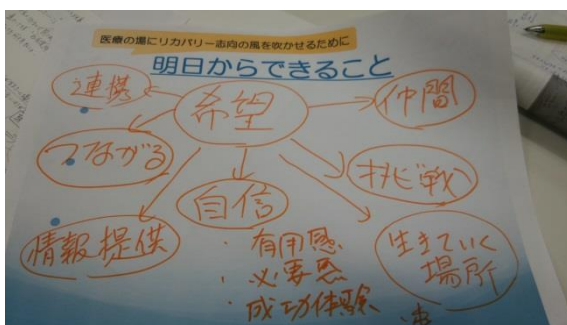 医療の場にリカバリー志向の風を吹かせるために
明日からできること
連携
希望
仲間
つながる
挑戦
自信
情報提供
・有用感
・必要感
・成功体験
生きていく
場所